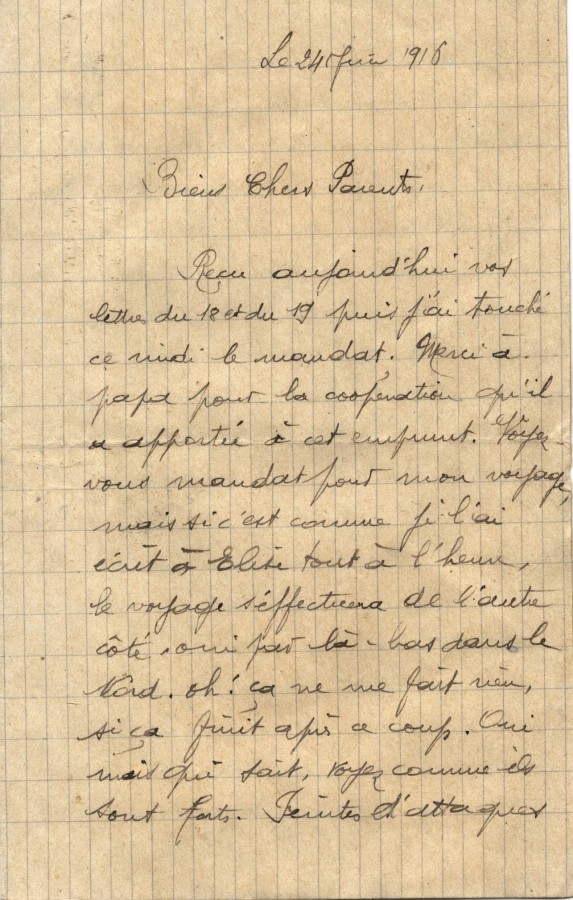 Le 24 Juin 1916
Biens Chers Parents.
Recu aujourd'hui vos
lettres du 18 et du 19 puis j'ai touché
ce midi le mandat. Merci à
papa pour la coopération qu'il
a apportée à cet emprunt. Voyez-
vous mandat pour mon voyage,
mais si c'est comme je l'ai
écrit à Elise tout à l'heure,
le voyage s'effectuera de l'autre
côté, oui par là-bas dans le
Nord. oh! ça ne me fait rien,
si ça finit après ce coup. Oui
mais qui sait, voyez comme ils
sont forts. Feintes d'attaques